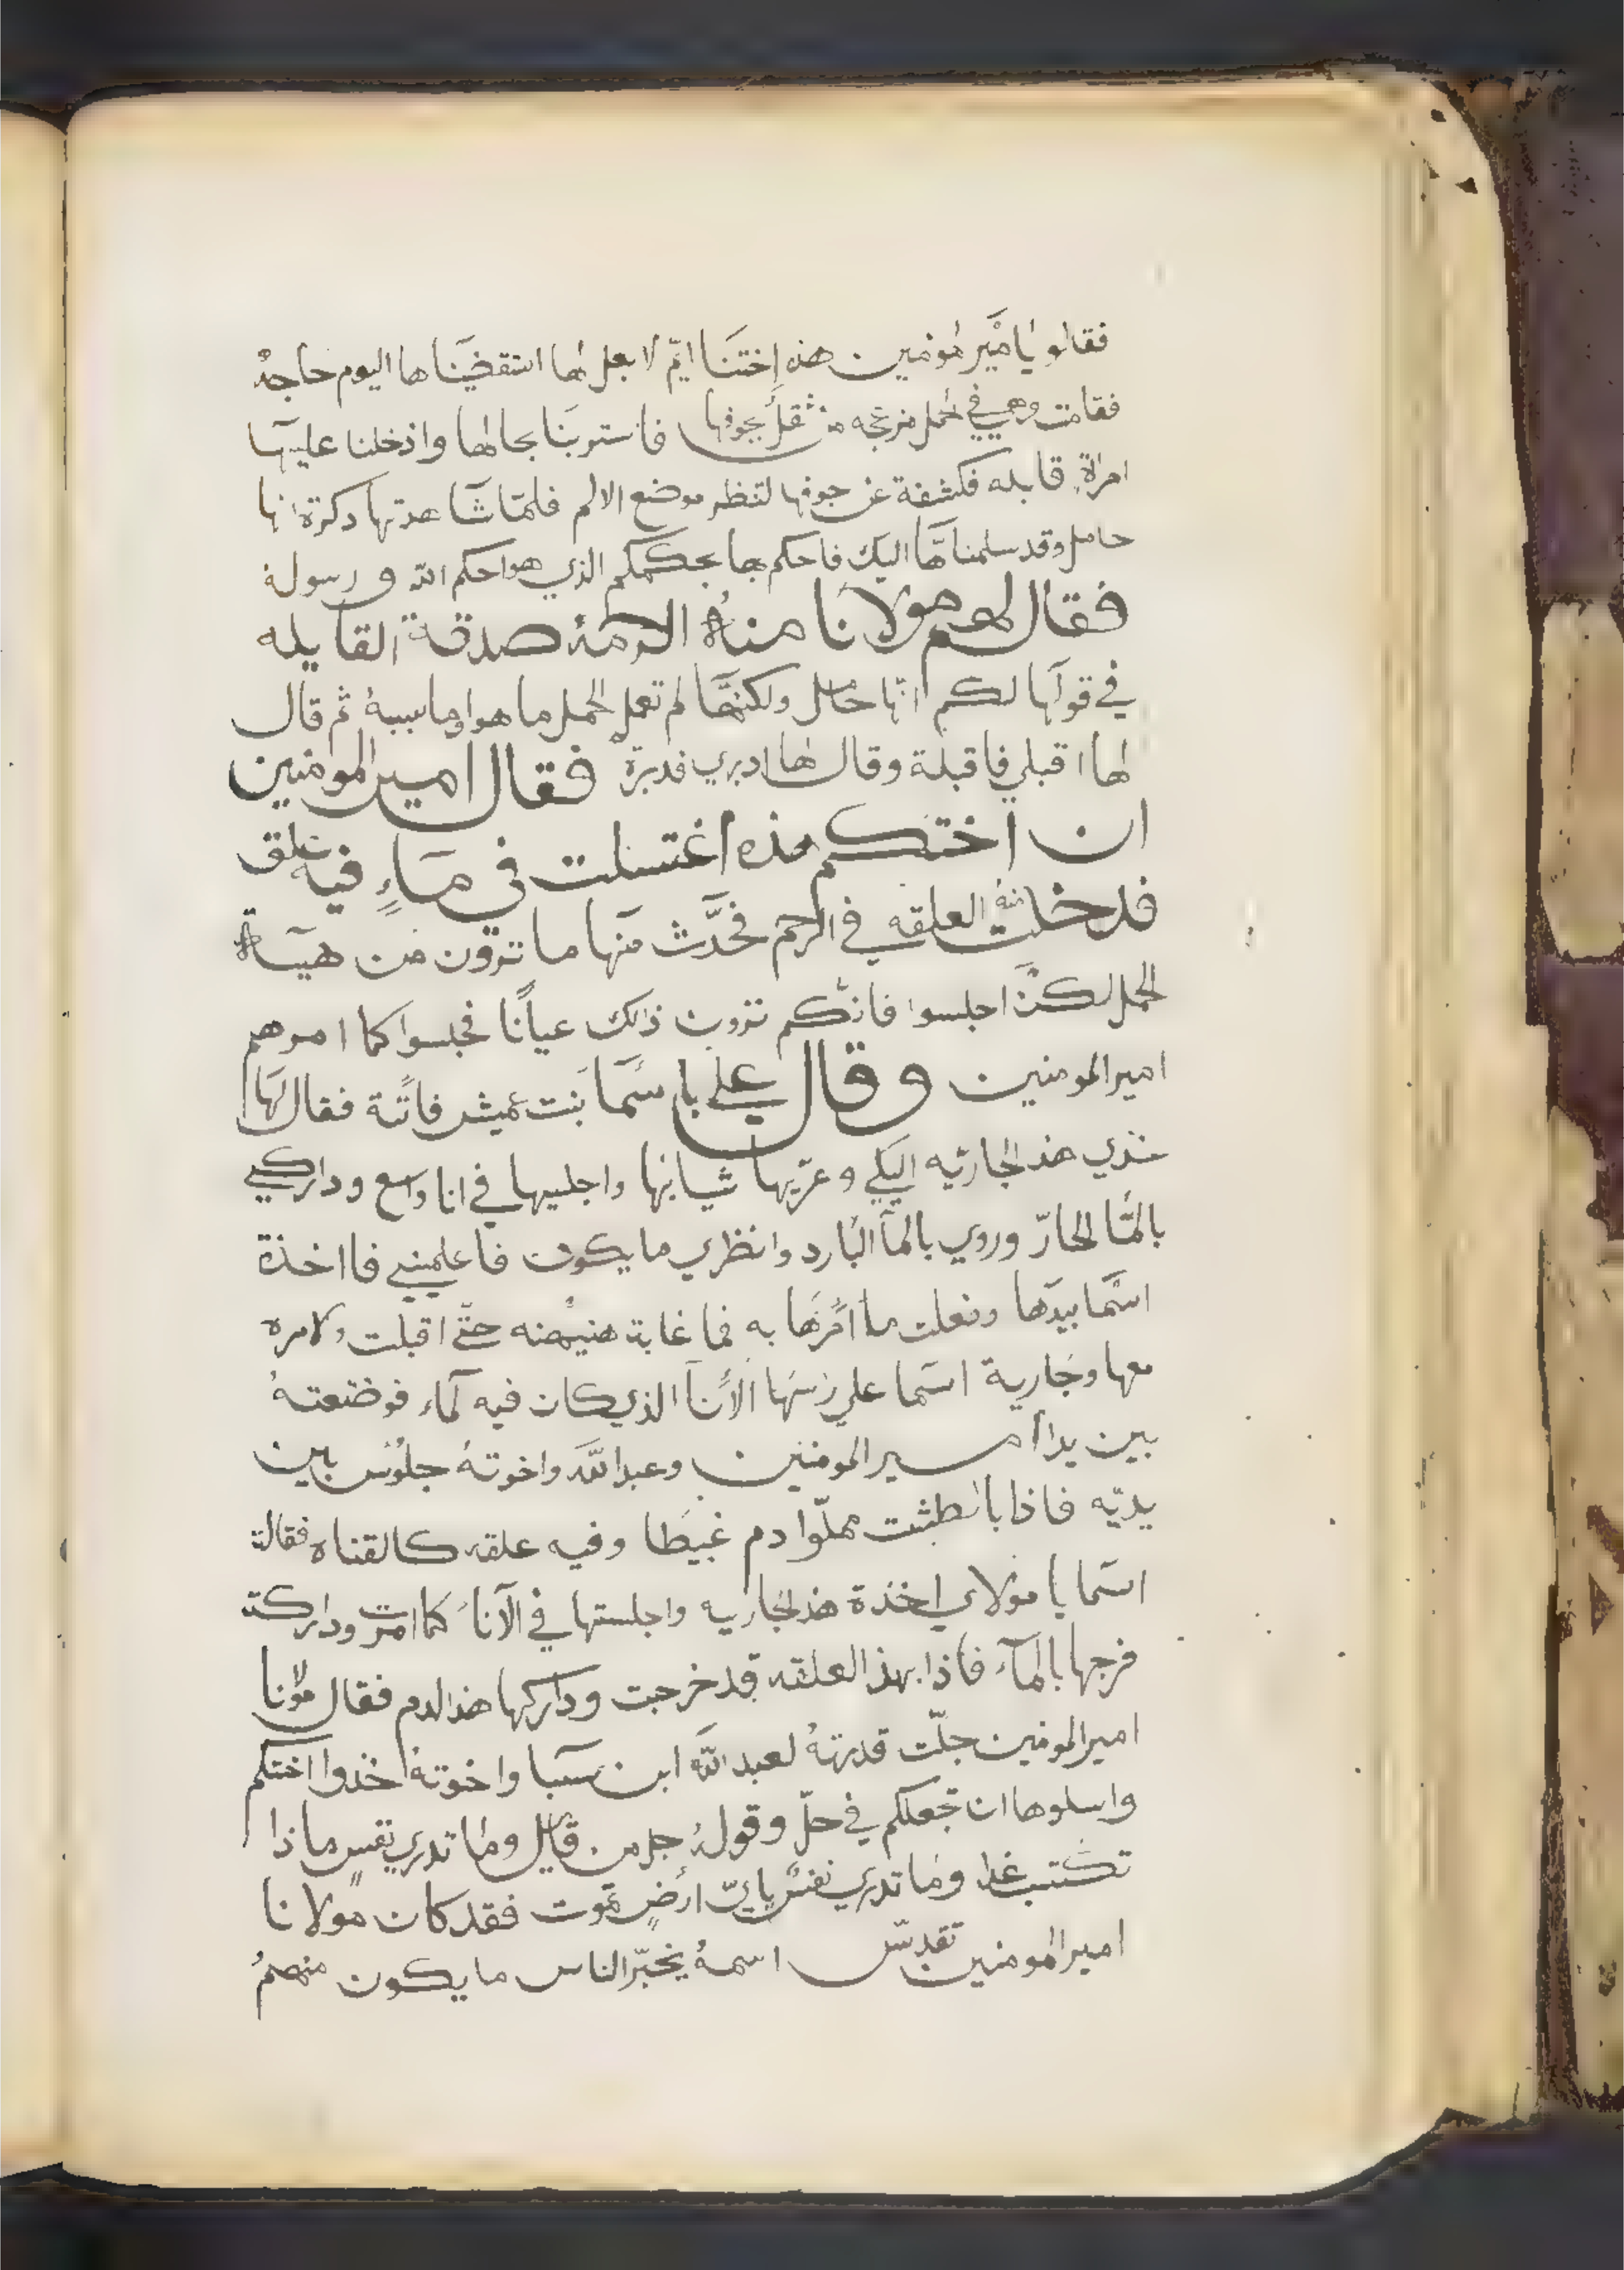 فقالو يا امير لمومنين هذه اختنا ايّم لا بعل لها استقضيناها اليوم حاجةً
فقامت وهي في لحمل مزعجه من ثقل بجوفها فاستربنا بحالها وادخلنا عليها
امراة قابله فكشفة عن جوفها لتنظر موضع الالم فلمّا شاهدتها دكرة انها
حامل وقد سلمناها اليك فاحكم بها بحكمكم الذي هوا حكم الله ورسوله
فقال لهم مولانا منهُ الرحمة صدقة القايله
في قولها لكم انّها حامل ولكنّها لم تعمل الحمل ما هوا وما سببهُ ثم قال
لها اقبلي فاقبلة وقال لها ادبري فدبرة فقال امير الموامنين
ان اختكم هذه اغتسلت في ماءٍ فيه علق
فدخلت منهُ العلقه في الرحم فحدّث منها ما ترون من هياة
الحمل لكن اجلسوا فانّكم ترون ذالك عيانًا فجلسوا كما امرهم
امير المومنين وقال علي باسما بنت عميش فاتة فقال لها
خذي هذ الجاريه اليكي وعرّيها ثيابها واجلسيها في انا واسع وداركي
بالمّا الحارّ وروي بالمآ البارد وانظري ما يكون فاعلميني فااخذة
اسما بيدها وفعلت ما امرها به فما غابة هنيهنه حتّى اقبلت ولامره
معها وجارية اسما علي رسها الأنآ الذي كان فيه لماء فوضعتهُ
بين يدا امير المومنين وعبد اللّه واخوتهُ جلوس بين
يديّه فاذا بالطشت مملّوا دم غبيطا وفيه علقه كالقناه فقالة
اسما يا مولاي اخذة هذ لجاريه واجلستها في الآناء كما امرت وداركة
فرجها بالمآء فاذا بهذ العلقه قد خرجت وداركها هذ الدم فقال مولانا
امير المومنين جلّت قدرتهُ لعبد اللّه ابن سبا واخوتهُ خذوا اختكم
واسلوها ان تجعلكم في حلّ وقولهُ جل من قايل وما تدري نفسٍ ماذا
تكتسب غدا وما تدري نفسٌ بايّ ارضٍ تموت فقد كان مولانا
امير المومنين تقدسّ اسمهُ يخبّر الناس ما يكون منهمُ